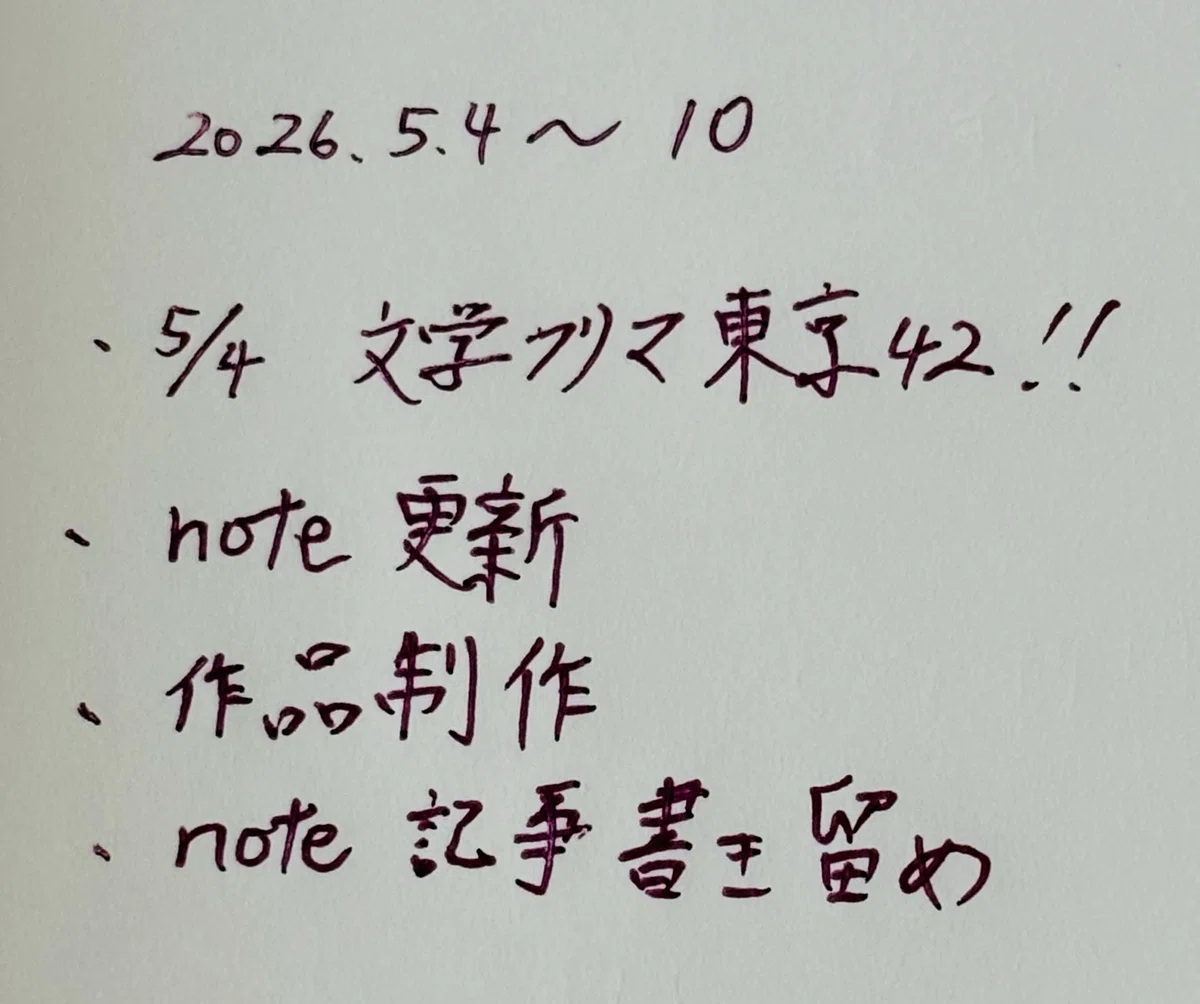 2026.5.4〜10
・5/4 文学フリマ東京42!!
・note 更新
・作品制作
・note 記事書き留め